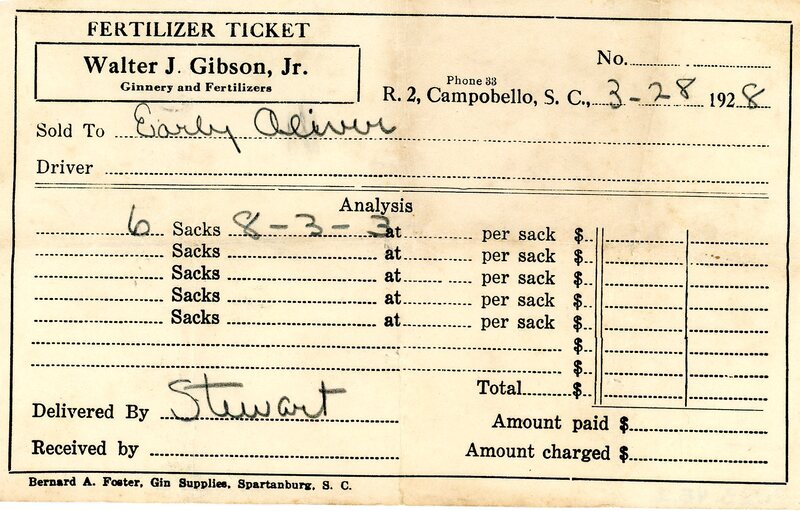 FERTILIZER TICKET
Walter J. Gibson, Jr.
Ginnery and Fertilizers
No.
Phone 33
R. 2, Campobello, S. C., 3-28 1928
Sold To Early Oliver
Driver
Analysis
6 Sacks 8-3-3 at per sack $
Sacks at per sack $
Sacks at per sack $
Sacks at per sack $
Sacks at per sack $
$
$
Total $
Delivered By Stewart
Amount paid $
Received by
Amount charged $
Bernard A. Foster, Gin Supplies, Spartanburg, S. C.